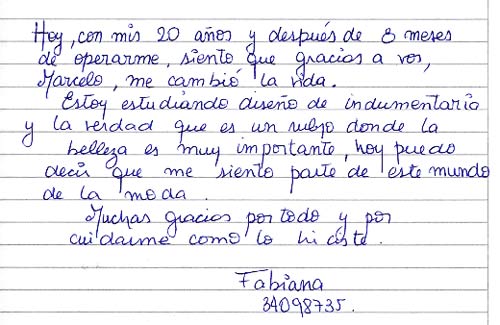 Hoy, con mis 20 años y después de 8 meses
de operarme, siento que gracias a vos,
Marcelo, me cambió la vida.
Estoy estudiando diseño de indumentaria
y la verdad que es un rubro donde la
belleza es muy importante, hoy puedo
decir que me siento parte de este mundo
de la moda.
Muchas gracias por todo y por
cuidarme como lo hiciste.
Fabiana
34098735.